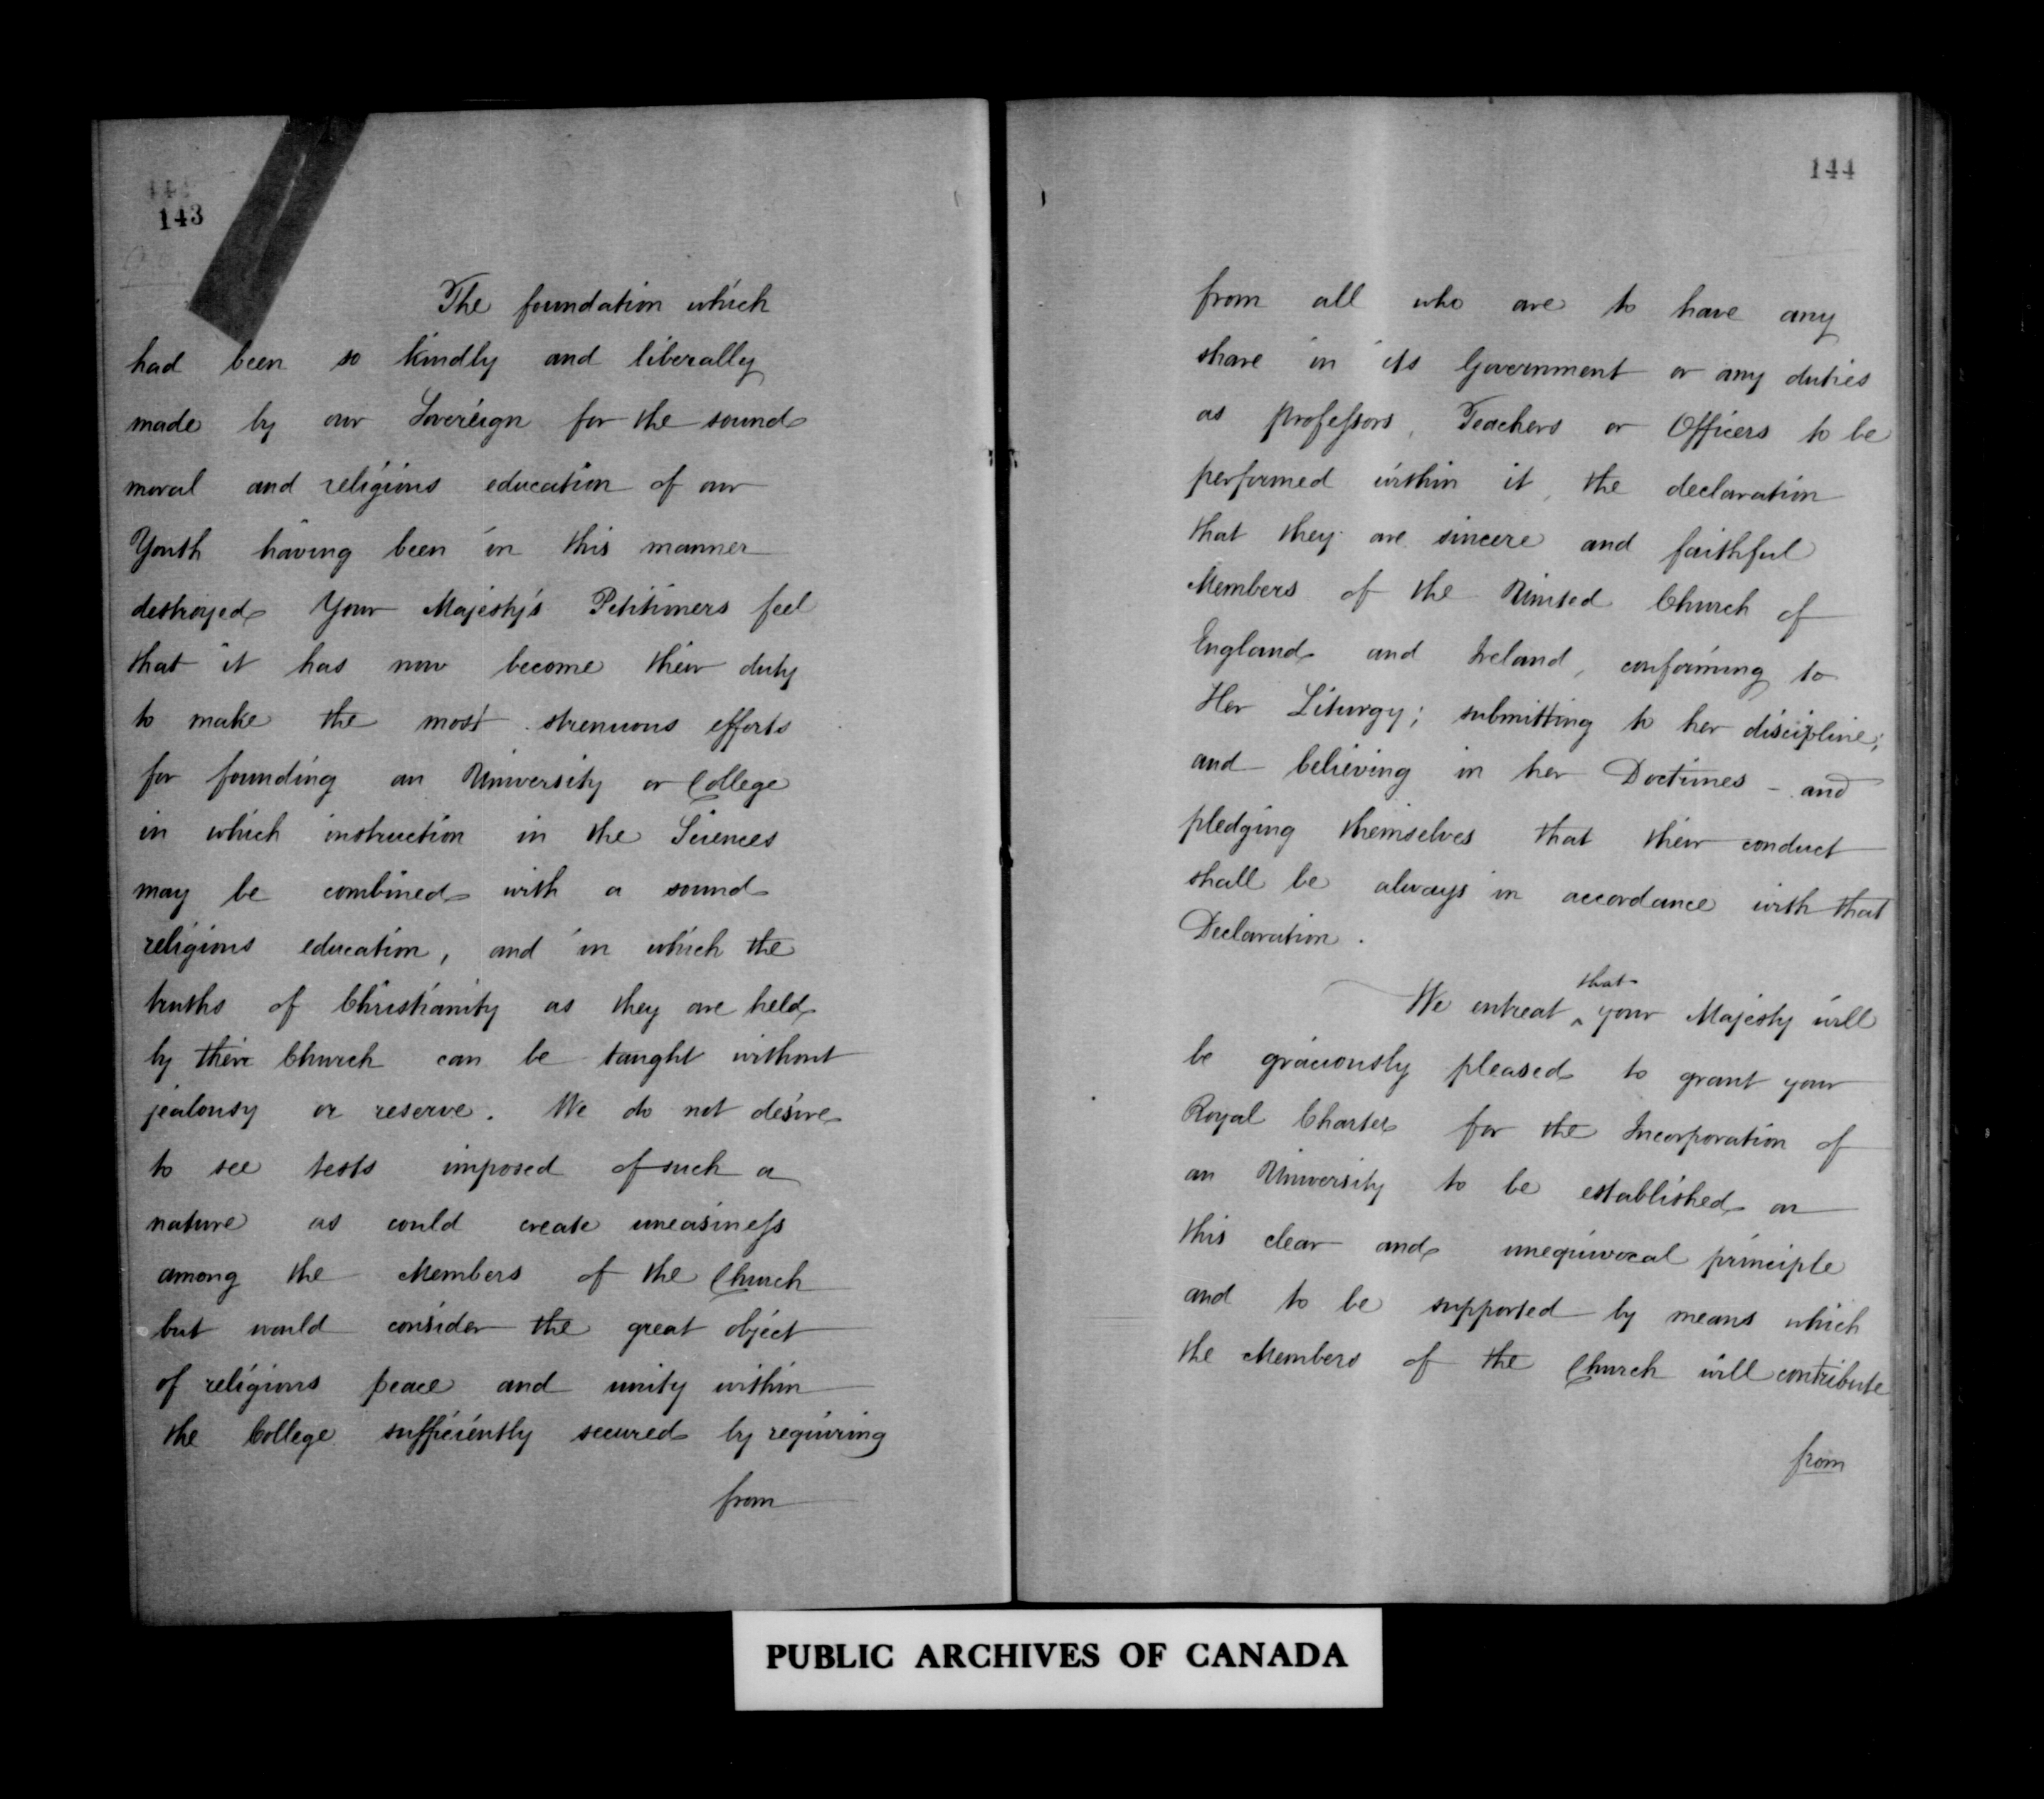 143
The foundation which
had been so kindly and liberally
made by our Sovereign for the sound
moral and religious education of our
Youth having been in this manner
destroyed Your Majesty's Petitioners feel
that it has now become their duty
to make the most strenuous efforts
for founding an University or College
in which instruction in the Sciences
may be combined with a sound
religious education, and in which the
truths of Christianity as they are held
by their Church can be taught without
jealousy or reserve. We do not desire
to see tests imposed of such a
nature as could create uneasiness
among the Members of the Church
but would consider the great object
of religious peace and unity within
the College sufficiently secured by requiring
from
144
from all who are to have any
share in its Government or any duties
as professors, Teachers or Officers to be
performed within it, the declaration
that they are sincere and faithful
Members of the United Church of
England and Ireland, conforming to
Her Liturgy; submitting to her discipline;
and believing in her Doctrines - and
pledging themselves that their conduct
shall be always in accordance with that
Declaration.
We entreat ^that your Majesty will
be graciously pleased to grant your
Royal Charter for the Incorporation of
an University to be established on
this clear and unequivocal principle
and to be supported by means which
the Members of the Church will contribute
from
PUBLIC ARCHIVES OF CANADA